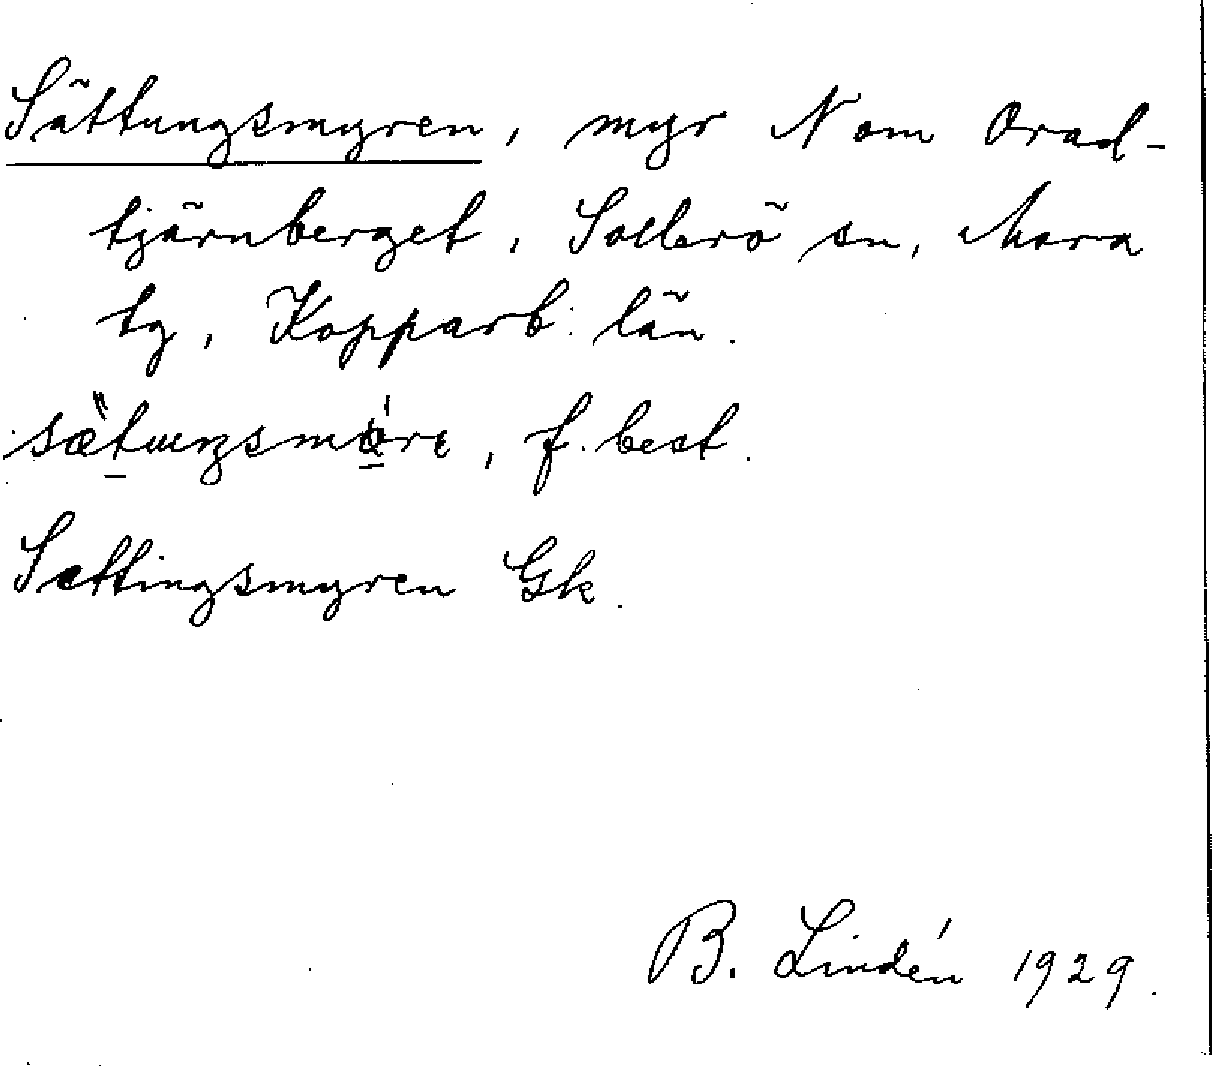 Sättungsmyren, myr N om Orad-
tjärnberget, Sollerö sn, Mora
tg, Kopparb. län.
f. best.
Settingsmyren Gk.
B. Lindén 1929.